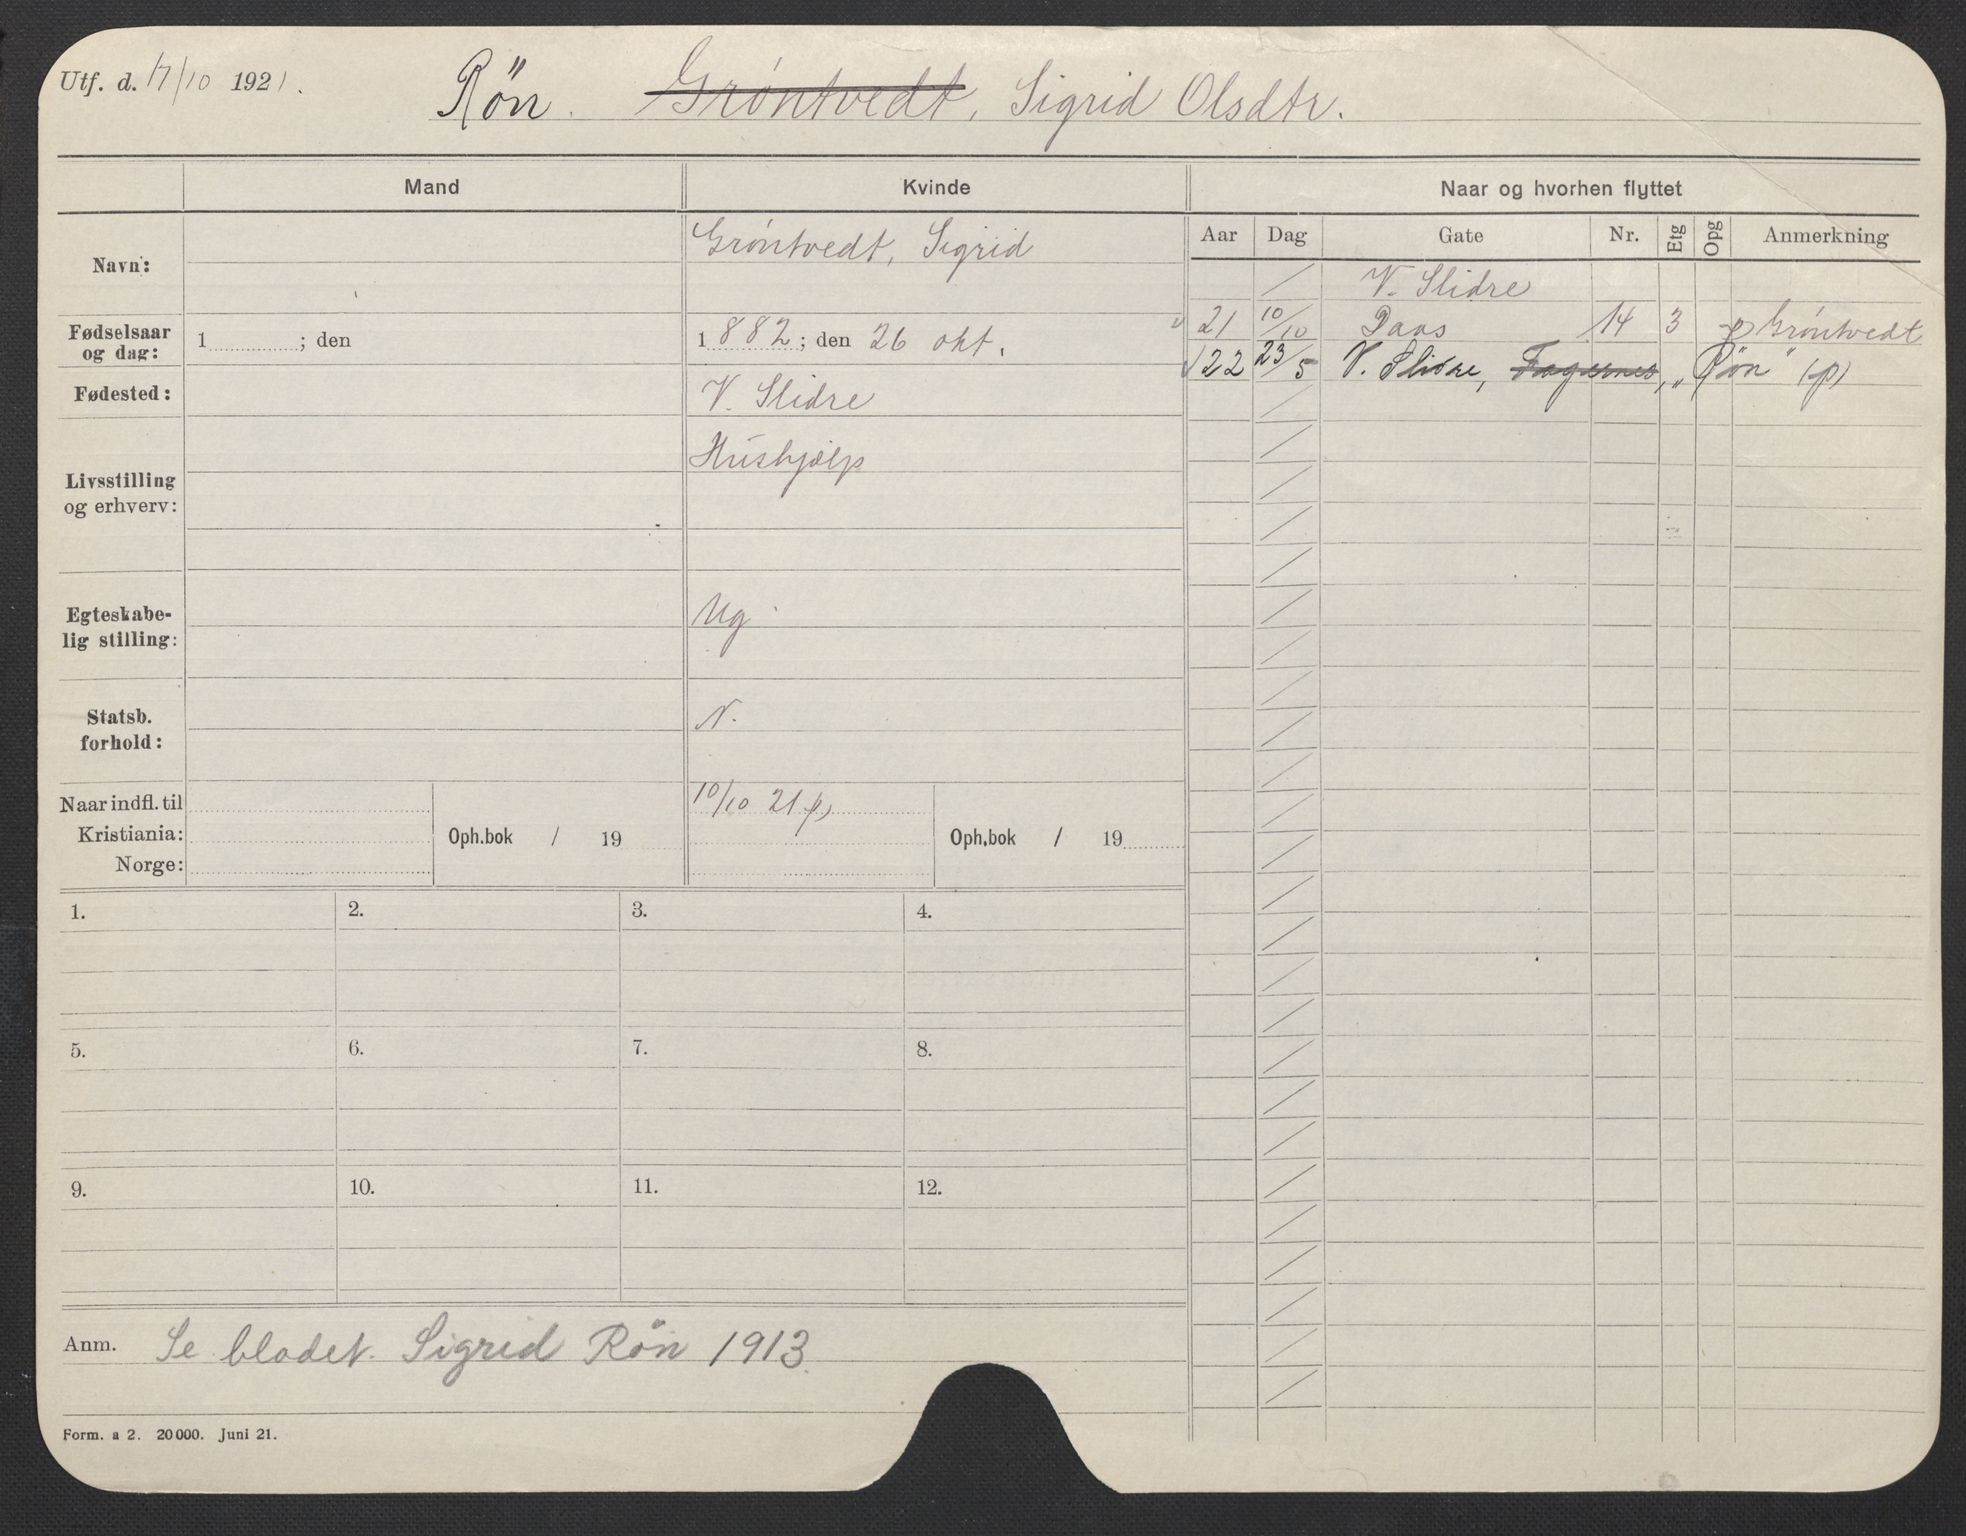 Utf. d. 17/10 1921.
Røn. Grøntvedt, Sigrid Olsdtr.
Mand Kvinde Naar og hvorhen flyttet
Aar Dag Gate Nr. Etg Opg Anmerkning
Navn: Grøntvedt, Sigrid
/ V. Slidre
21 10/10 Daas 14 3 p Grøntvedt
22 23/5 V. Slidre, Fagernes, „Røn“ (p)
Fødselsaar
og dag:
1 ; den 1882; den 26 okt.
Fødested: V. Slidre
Livsstilling
og erhverv:
Hushjælp
Egteskabe-
lig stilling:
Ug
Statsb.
forhold:
N.
Naar indfl. til
Kristiania:
Norge:
Oph.bok / 19
10/10 21 p)
Oph.bok / 19
1. 2. 3. 4.
5. 6. 7. 8.
9. 10. 11. 12.
Anm. Se bladet Sigrid Røn 1913.
Form. a 2. 20 000. Juni 21.